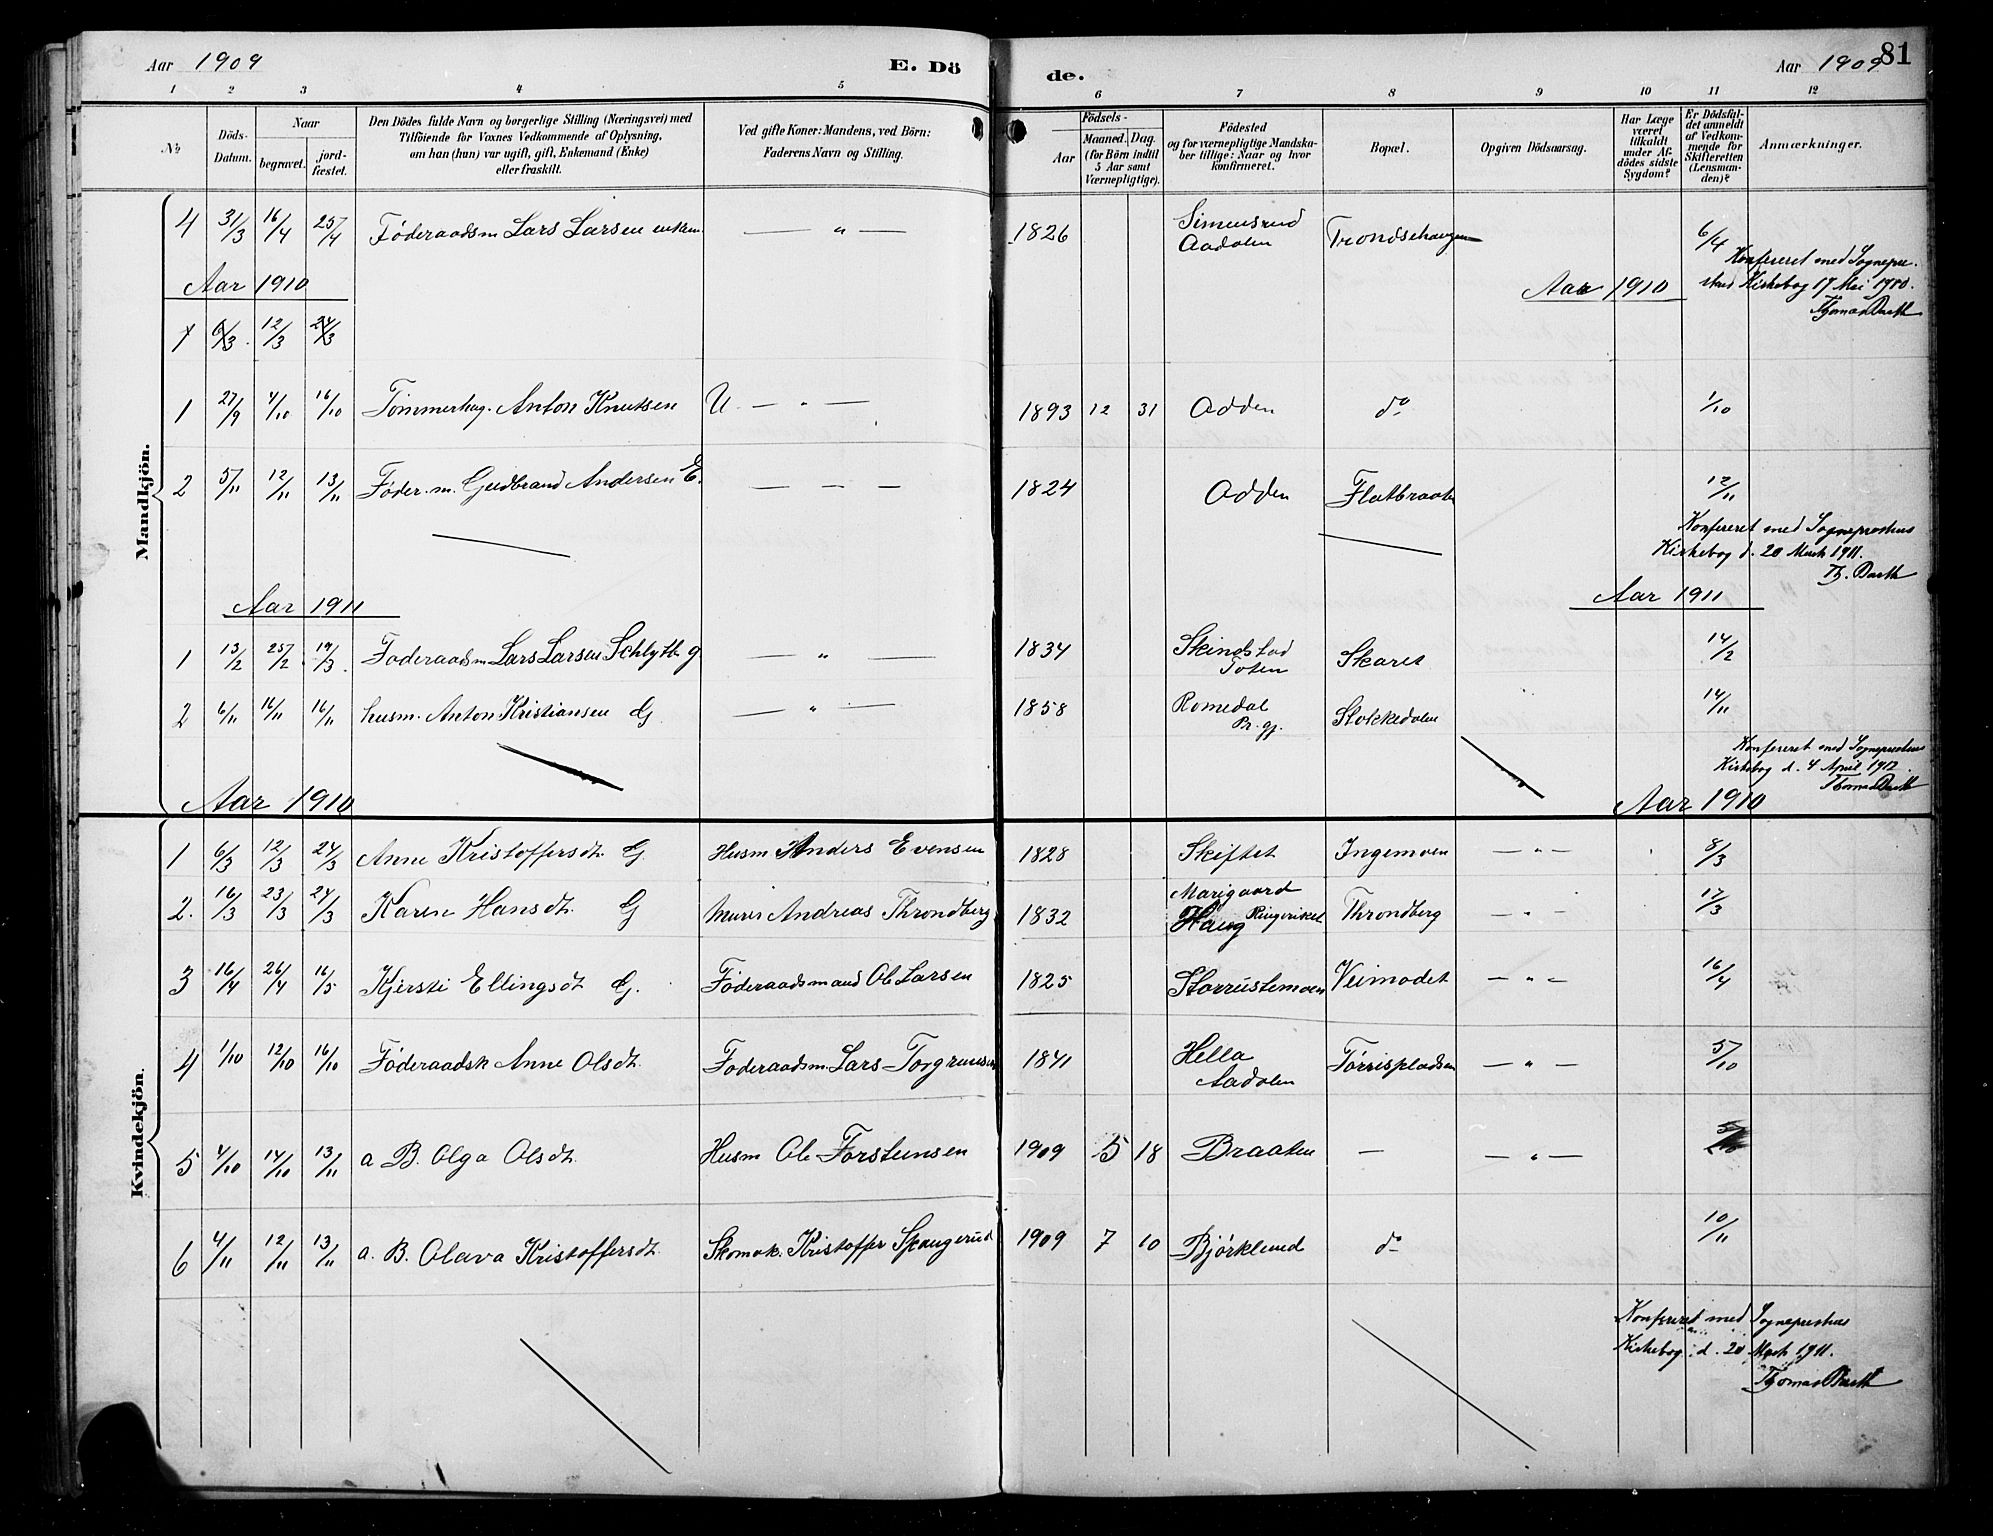 Aar 1909 E. Dö de. Aar 1909 81
1 2 3 4 5 6 7 8 9 10 11 12
№
Döds-
Datum.
Naar
begravet.
jord-
fæstet.
Den Dödes fulde Navn og borgerlige Stilling (Næringsvei) med
Tilföiende for Voxnes Vedkommende af Oplysning,
om han (hun) var ugift, gift, Enkemand (Enke)
eller fraskilt.
Ved gifte Koner: Mandens, ved Börn:
Faderens Navn og Stilling.
Födsels-
Aar
Maaned. Dag.
(for Börn indtil
5 Aar samt
Værnepligtige).
Födested
og for værnepligtige Mandska-
ber tillige: Naar og hvor
konfirmeret.
Bopæl.
Opgiven Dödsaarsag.
Har Læge
været
tilkaldt
under Af-
dödes sidste
Sygdom?
Er Dödsfal-
det anmeldt
af Vedkom-
mende for
Skifteretten
(Lensman-
den)?
Anmærkninger.
Mandkjön.
4 31/3 16/4 25/4 Föderaadsm Lars Larsen enkem. — " — 1826 Simensrud Aadalen Trondsehaugen 6/4
Konfereret med Sognepre-
stens Kirkebog 17 Mai 1910.
Thomas Barth
Aar 1910 Aar 1910
1 6/3 12/3 24/3
1 27/9 4/10 16/10 Tömmerhug. Anton Knutsen U. — " — 1893 12 31 Adden do 1/10
2 5/11 12/11 13/11 Föder.m. Gudbrand Andersen E. — — — 1824 Adden Flatbraaten 12/11
Konfereret med Sogneprestens
Kirkebog d. 20 Marts 1911.
Th. Barth
Aar 1911 Aar 1911
1 13/2 25/2 19/3 Föderaadsm Lars Larsen Schlytt g — " — 1834 Skindstad Toten Skaret 14/2
2 6/11 16/11 16/11 husm. Anton Kristiansen G — " — 1858 Romedal Pr. gj. Stokkedalen 14/11
Konfereret med Sogneprestens
Kirkebog d. 4 April 1912.
Thomas Barth
Aar 1910 Aar 1910
Kvindekjön.
1 6/3 12/3 24/3 Anne Kristoffersdt. G Husm Anders Evensen 1828 Skiftet Ingemoen — " — 8/3
2. 16/3 23/3 24/3 Karen Hansdt. G Murer Andreas Throndberg 1832 Marigaard Haug Ringeriket Throndberg — " — 17/3
3 16/4 26/4 16/5 Kjersti Ellingsdt G. Föderaadsmand Ole Larsen 1825 Storrustemoen Veimodet — " — 16/4
4 1/10 12/10 16/10 Föderaadsk Anne Olsdt. Föderaadsm. Lars Torgrimsen 1841 Hella Aadalen Tórrispladsen — " — 5/10
5 4/10 14/10 13/11 a B. Olga Olsdt. Husm Ole Torstensen 1909 5 18 Braaten — — " —
6 4/11 12/11 13/11 a. B. Olava Kristoffersdt. Skomak. Kristoffer Spangerud 1909 7 10 Björklund do 10/11
Konfereret med Sogneprestens
Kirkebog d. 20 Marts 1911.
Thomas Barth